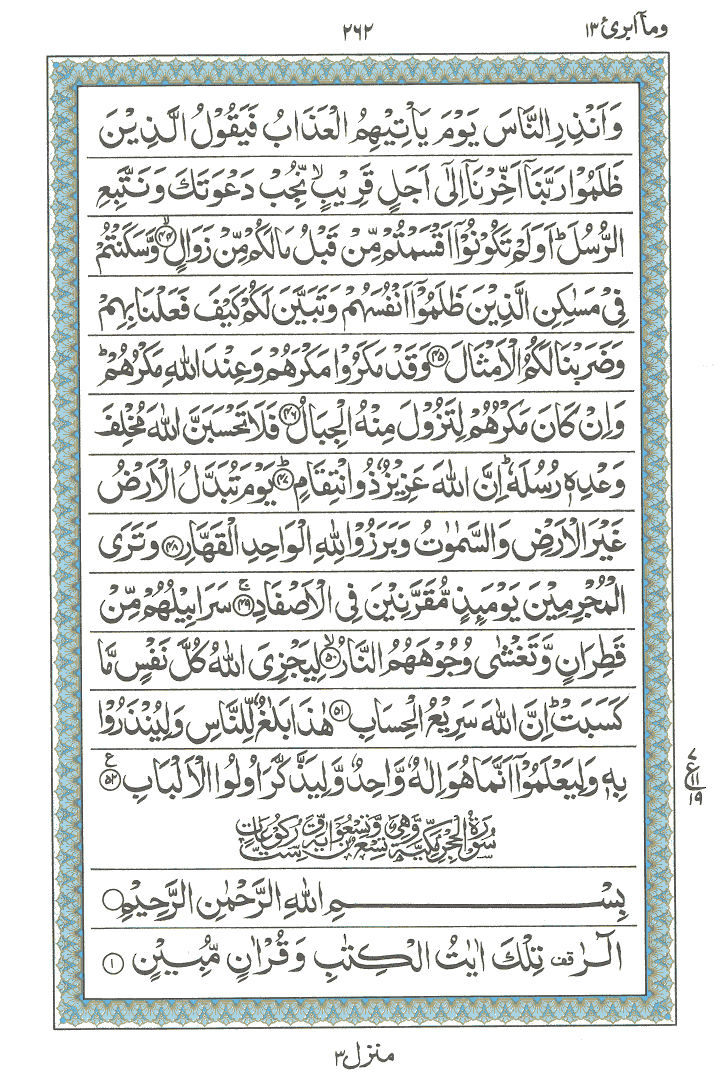 وما ابرئ ۱۳
۲۶۲
وَاَنْذِرِ النَّاسَ يَوْمَ يَاْتِيْهِمُ الْعَذَابُ فَيَقُوْلُ الَّذِيْنَ
ظَلَمُوْا رَبَّنَاۤ اَخِّرْنَاۤ اِلٰۤى اَجَلٍ قَرِيْبٍۙ نُّجِبْ دَعْوَتَكَ وَنَتَّبِعِ
الرُّسُلَؕ اَوَلَمْ تَكُوْنُوْۤا اَقْسَمْتُمْ مِّنْ قَبْلُ مَا لَكُمْ مِّنْ زَوَالٍۙ ﴿۴۴﴾ وَّسَكَنْتُمْ
فِيْ مَسٰكِنِ الَّذِيْنَ ظَلَمُوْۤا اَنْفُسَهُمْ وَتَبَيَّنَ لَكُمْ كَيْفَ فَعَلْنَا بِهِمْ
وَضَرَبْنَا لَكُمُ الْاَمْثَالَ ﴿۴۵﴾ وَقَدْ مَكَرُوْا مَكْرَهُمْ وَعِنْدَ اللّٰهِ مَكْرُهُمْؕ
وَاِنْ كَانَ مَكْرُهُمْ لِتَزُوْلَ مِنْهُ الْجِبَالُ ﴿۴۶﴾ فَلَا تَحْسَبَنَّ اللّٰهَ مُخْلِفَ
وَعْدِهٖ رُسُلَهٗؕ اِنَّ اللّٰهَ عَزِيْزٌ ذُو انْتِقَامٍؕ ﴿۴۷﴾ يَوْمَ تُبَدَّلُ الْاَرْضُ
غَيْرَ الْاَرْضِ وَالسَّمٰوٰتُ وَبَرَزُوْا لِلّٰهِ الْوَاحِدِ الْقَهَّارِ ﴿۴۸﴾ وَتَرَى
الْمُجْرِمِيْنَ يَوْمَئِذٍ مُّقَرَّنِيْنَ فِي الْاَصْفَادِۚ ﴿۴۹﴾ سَرَابِيْلُهُمْ مِّنْ
قَطِرَانٍ وَّتَغْشٰى وُجُوْهَهُمُ النَّارُۙ ﴿۵۰﴾ لِيَجْزِيَ اللّٰهُ كُلَّ نَفْسٍ مَّا
كَسَبَتْؕ اِنَّ اللّٰهَ سَرِيْعُ الْحِسَابِ ﴿۵۱﴾ هٰذَا بَلٰغٌ لِّلنَّاسِ وَلِيُنْذَرُوْا
بِهٖ وَلِيَعْلَمُوْۤا اَنَّمَا هُوَ اِلٰهٌ وَّاحِدٌ وَّلِيَذَّكَّرَ اُولُوا الْاَلْبَابِ ﴿۵۲﴾ ع
۷
ع ۱۱
۱۹
سُوْرَةُ الْحِجْرِ مَكِّيَّةٌ وَّهِيَ تِسْعٌ وَّتِسْعُوْنَ اٰيَةً وَّسِتُّ رُكُوْعَاتٍ
بِسْمِ اللّٰهِ الرَّحْمٰنِ الرَّحِيْمِ
الٓرٰ قف تِلْكَ اٰيٰتُ الْكِتٰبِ وَقُرْاٰنٍ مُّبِيْنٍ ﴿۱﴾
منزل ۳